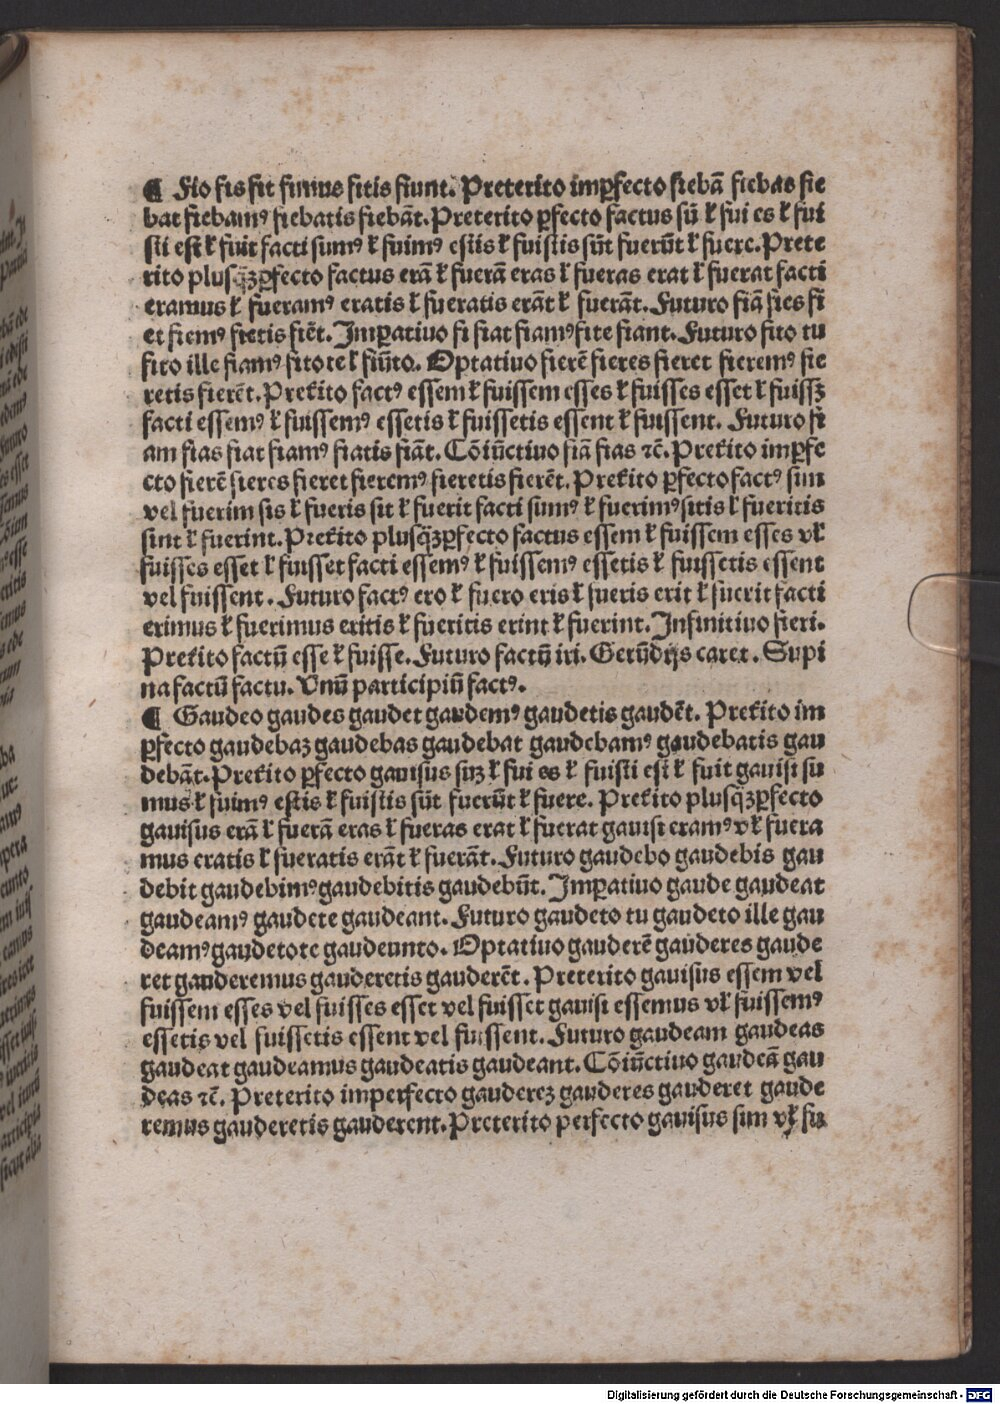 ¶ Fio fis fit fimus fitis fiunt. Preterito imꝑfecto fiebā fiebas fie
bat fiebamꝰ fiebatis fiebāt. Preterito ꝑfecto factus sū ł fui es ł fui
sti est ł fuit facti sumꝰ ł fuimꝰ estis ł fuistis sūt fuerūt ł fuere. Prete
rito plusq̄ꝫꝑfecto factus erā ł fuerā eras ł fueras erat ł fuerat facti
eramus ł fueramꝰ eratis ł fueratis erāt ł fuerāt. Futuro fiā fies fi
et fiemꝰ fietis fiēt. Imꝑatiuo fi fiat fiamꝰ fite fiant. Futuro fito tu
fito ille fiamꝰ fitote ł fiūto. Optatiuo fierē fieres fieret fieremꝰ fie
retis fierēt. Preťito factꝰ essem ł fuissem esses ł fuisses esset ł fuissꝫ
facti essemꝰ ł fuissemꝰ essetis ł fuissetis essent ł fuissent. Futuro fi
am fias fiat fiamꝰ fiatis fiāt. Cōiūctiuo fiā fias ⁊c̄. Preťito imꝑfe
cto fierē fieres fieret fieremꝰ fieretis fierēt. Preťito ꝑfecto factꝰ sim
vel fuerim sis ł fueris sit ł fuerit facti simꝰ ł fuerimꝰ sitis ł fueritis
sint ł fuerint. Preťito plusq̄ꝫꝑfecto factus essem ł fuissem esses vł
fuisses esset ł fuisset facti essemꝰ ł fuissemꝰ essetis ł fuissetis essent
vel fuissent. Futuro factꝰ ero ł fuero eris ł fueris erit ł fuerit facti
erimus ł fuerimus eritis ł fueritis erint ł fuerint. Infinitiuo fieri.
Preťito factū esse ł fuisse. Futuro factū iri. Gerūdijs caret. Supi
na factū factu. Unū participiū factꝰ.
¶ Gaudeo gaudes gaudet gaudemꝰ gaudetis gaudēt. Preťito im
ꝑfecto gaudebaꝫ gaudebas gaudebat gaudebamꝰ gaudebatis gau
debāt. Preťito ꝑfecto gauisus suꝫ ł fui es ł fuisti est ł fuit gauisi su
mus ł fuimꝰ estis ł fuistis sūt fuerūt ł fuere. Preťito plusq̄ꝫꝑfecto
gauisus erā ł fuerā eras ł fueras erat ł fuerat gauisi eramꝰ vł fuera
mus eratis ł fueratis erāt ł fuerāt. Futuro gaudebo gaudebis gau
debit gaudebimꝰ gaudebitis gaudebūt. Imꝑatiuo gaude gaudeat
gaudeamꝰ gaudete gaudeant. Futuro gaudeto tu gaudeto ille gau
deamꝰ gaudetote gaudeunto. Optatiuo gauderē gauderes gaude
ret gauderemus gauderetis gauderēt. Preterito gauisus essem vel
fuissem esses vel fuisses esset vel fuisset gauisi essemus vł fuissemꝰ
essetis vel fuissetis essent vel fuissent. Futuro gaudeam gaudeas
gaudeat gaudeamus gaudeatis gaudeant. Cōiūctiuo gaudeā gau
deas ⁊c̄. Preterito imperfecto gaudereꝫ gauderes gauderet gaude
remus gauderetis gauderent. Preterito perfecto gauisus sim vł fu
Digitalisierung gefördert durch die Deutsche Forschungsgemeinschaft - DFG